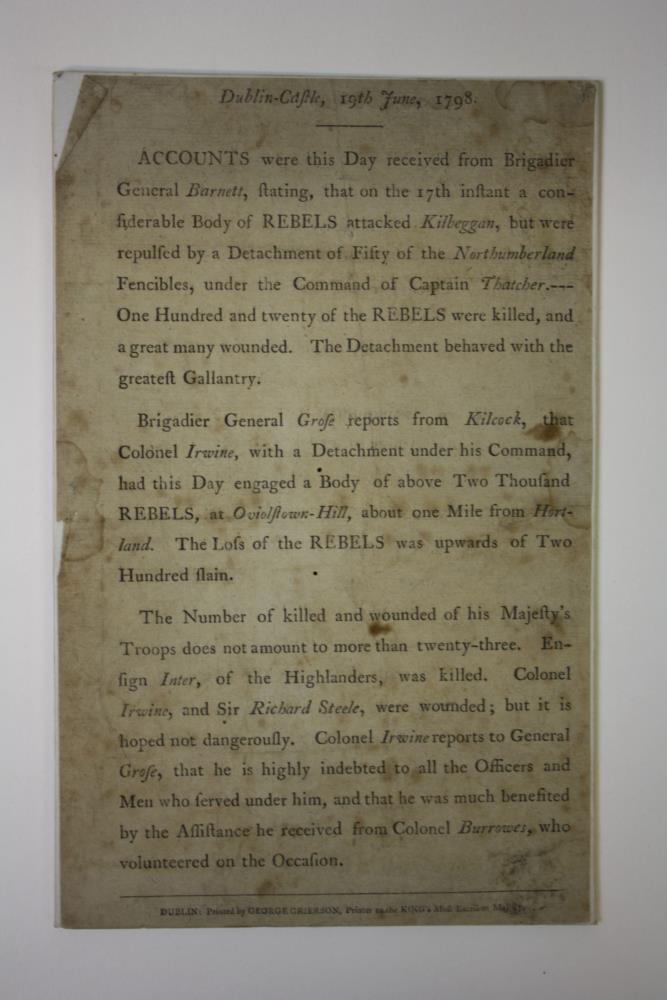 Dublin-Caſtle, 19th June, 1798.
ACCOUNTS were this Day received from Brigadier
General Barnett, ſtating, that on the 17th inſtant a con-
ſiderable Body of REBELS attacked Kilbeggan, but were
repulſed by a Detachment of Fifty of the Northumberland
Fencibles, under the Command of Captain Thatcher.---
One Hundred and twenty of the REBELS were killed, and
a great many wounded. The Detachment behaved with the
greateſt Gallantry.
Brigadier General Groſe reports from Kilcock, that
Colonel Irwine, with a Detachment under his Command,
had this Day engaged a Body of above Two Thouſand
REBELS, at Oviolſtown-Hill, about one Mile from Hort-
land. The Loſs of the REBELS was upwards of Two
Hundred ſlain.
The Number of killed and wounded of his Majeſty's
Troops does not amount to more than twenty-three. En-
ſign Inter, of the Highlanders, was killed. Colonel
Irwine, and Sir Richard Steele, were wounded; but it is
hoped not dangerouſly. Colonel Irwine reports to General
Groſe, that he is highly indebted to all the Officers and
Men who ſerved under him, and that he was much benefited
by the Aſſiſtance he received from Colonel Burrowes, who
volunteered on the Occaſion.
DUBLIN: Printed by GEORGE GRIERSON, Printer to the KING's Moſt Excellent